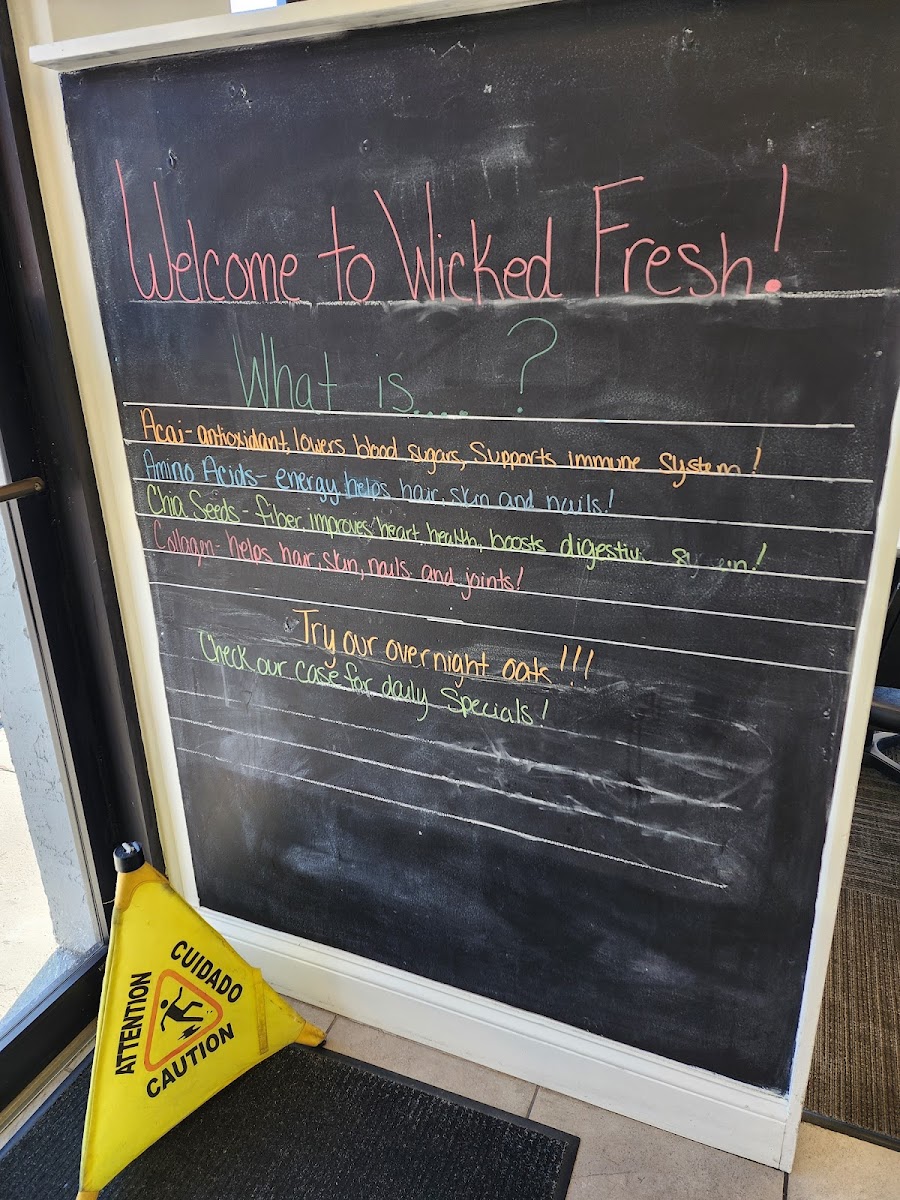 Welcome to Wicked Fresh!
What is.... ?
Acai- antioxidant, lowers blood sugars, Supports immune System!
Amino Acids- energy helps hair, skin and nails!
Chia Seeds- fiber, improves heart health, boosts digestive
Collagen- helps hair, skin, nails and joints!
Try our overnight oats!!!
Check our case for daily Specials!
CUIDADO
ATTENTION
CAUTION